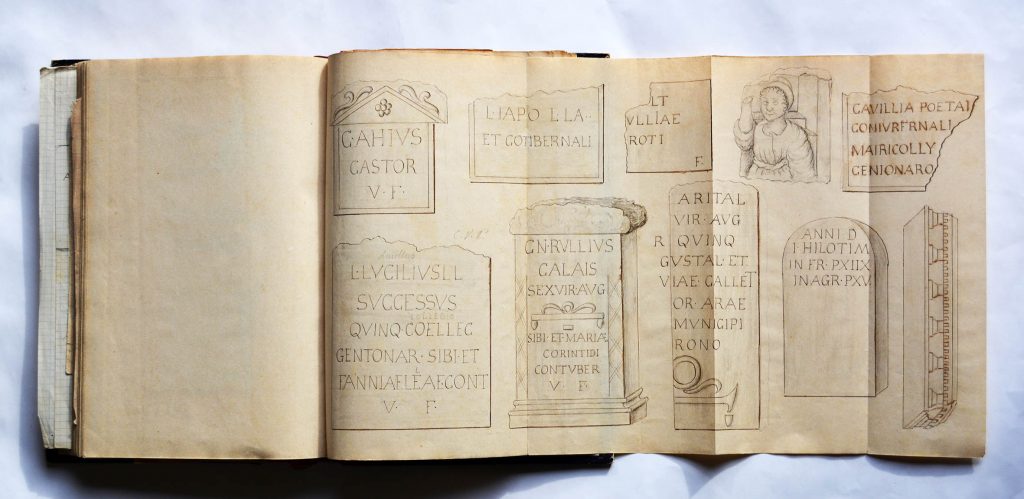 C·AHIVS
CASTOR
V · F ·
L·IAPO L LA··
ET CONTBERNALI
LT
VLLIAE
ROTI
F·
CAVILLIA POETAI
CONIVRFRNALI
MAIRICOLLY
CENIONARO
L·LVCILIVS L L
SVCCESSVS
collegio
QVINQ·COELLEC
CENTONAR·SIBI·ET
L
FANNIAELEAE·CONT
V · F ·
CN·RVLLIVS
CALAIS
SEXVIR·AVG
SIBI·ET·MARIÆ
CORINTIDI
CONTVBER
V · F ·
ARITAL
VIR·AVG
R QVINQ
GVSTAL·ET
VIAE·CALLET
OR·ARAE
MVNICIPI
RONO
ANNI D
I·HILOTIM
IN FR·PXIIX
INAGR·PXV